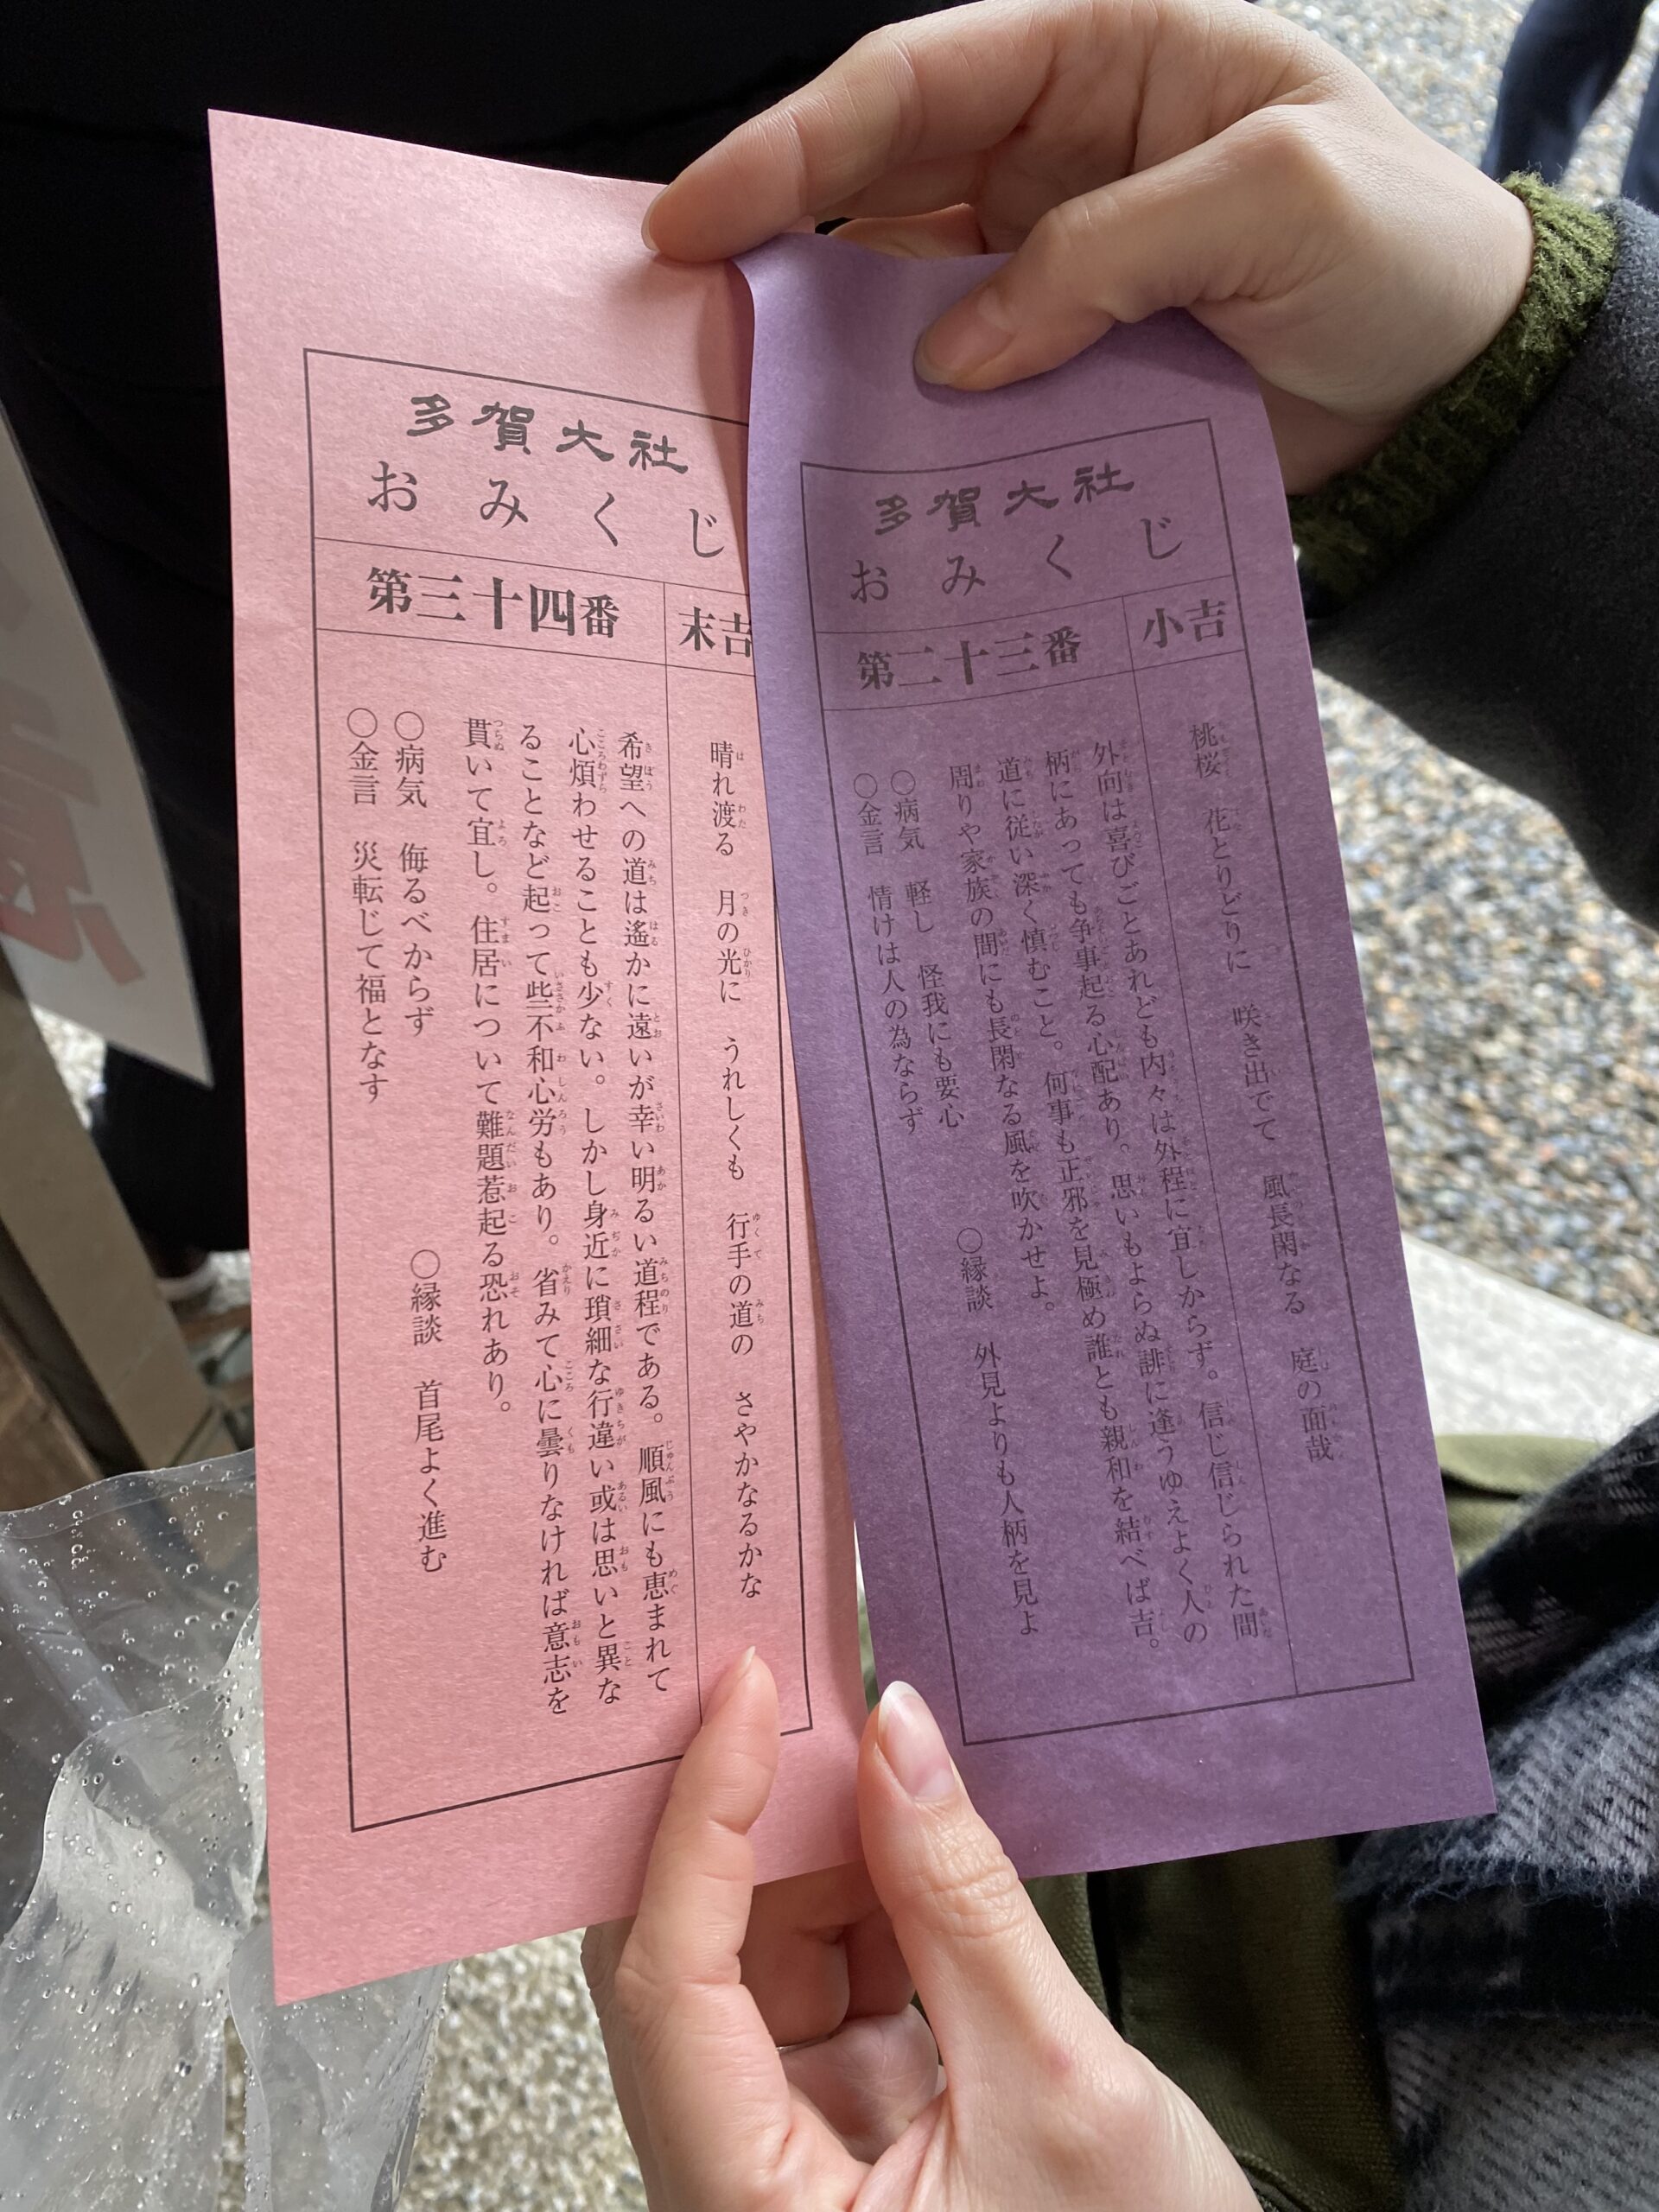 多賀大社
おみくじ
第三十四番
末吉
晴れ渡る 月の光に うれしくも 行手の道の さやかなるかな
希望への道は遙かに遠いが幸い明るい道程である。順風にも恵まれて
心煩わせることも少ない。しかし身近に瑣細な行違い或は思いと異な
ることなど起って些不和心労もあり。省みて心に曇りなければ意志を
貫いて宜し。住居について難題惹起る恐れあり。
〇病気 侮るべからず 〇縁談 首尾よく進む
〇金言 災転じて福となす
多賀大社
おみくじ
第二十三番
小吉
桃桜 花とりどりに 咲き出でて 風長閑なる 庭の面哉
外向は喜びごとあれども内々は外程に宜しからず。信じ信じられた間
柄にあっても争事起る心配あり。思いもよらぬ誹に逢うゆえよく人の
道に従い深く慎むこと。何事も正邪を見極め誰とも親和を結べば吉。
周りや家族の間にも長閑なる風を吹かせよ。
〇病気 軽し 怪我にも要心 〇縁談 外見よりも人柄を見よ
〇金言 情けは人の為ならず